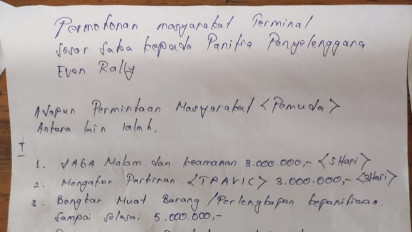 Permohonan masyarakat Terminal
Sosor Saba kepada Panitia Penyelenggara
Evan Rally
Adapun Permintaan Masyarakat <Pemuda>
Antara lain ialah.
I
1. JAGA Malam dan keamanan 3.000.000,- <5Hari>
2. Mengatur Parkiran <TRAVIC> 3.000.000,- <3Hari>
3. Bongkar Muat Barang / Perlengkapan kepanitiaan.
Sampai selesai 5.000.000,-